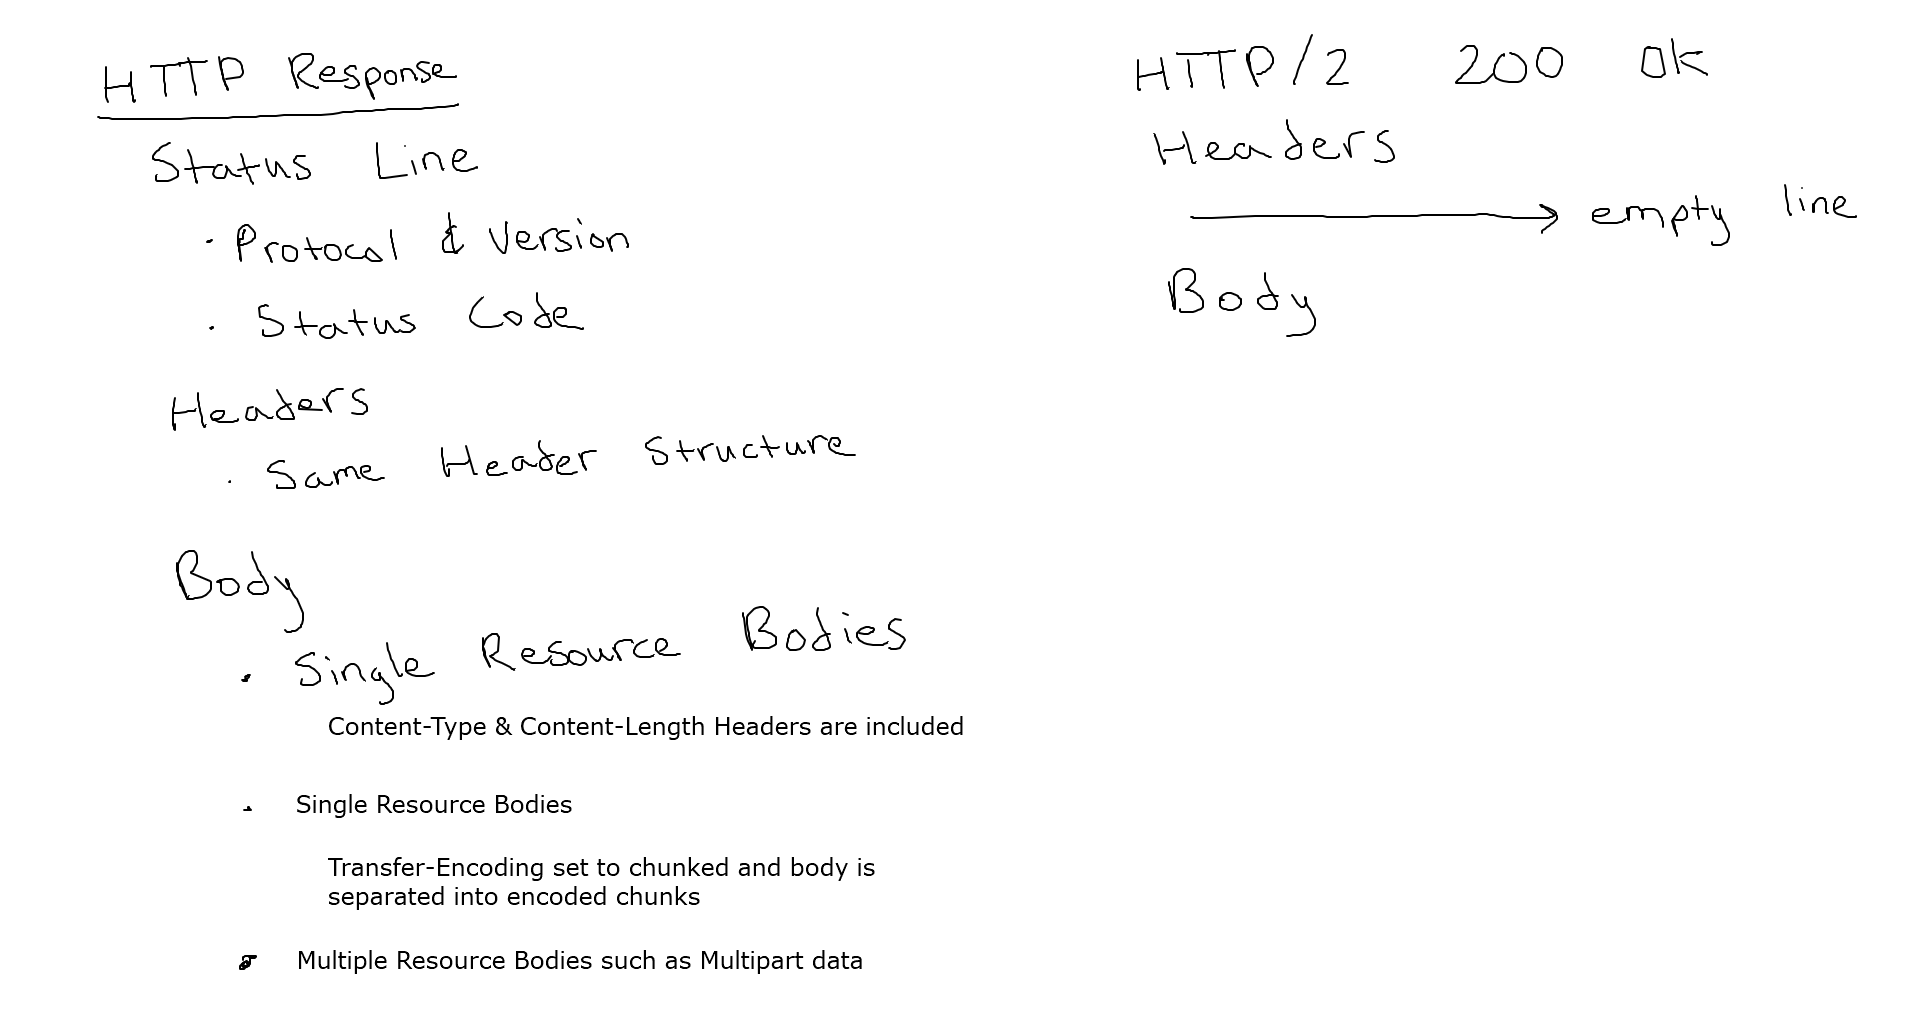 HTTP Response
Status Line
· Protocal & Version
· Status Code
Headers
· Same Header Structure
Body
· Single Resource Bodies
Content-Type & Content-Length Headers are included
· Single Resource Bodies
Transfer-Encoding set to chunked and body is
separated into encoded chunks
· Multiple Resource Bodies such as Multipart data
HTTP/2 200 Ok
Headers
→ empty line
Body